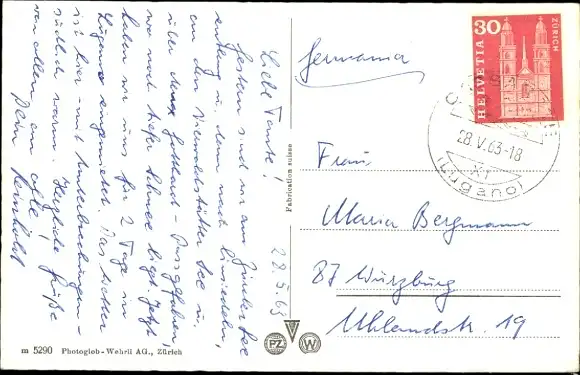 28.5.63
Liebe Tante!
Gestern sind wir am Zürcher See
entlang u. dann nach Einsiedeln,
an den Vierwaldstätter See u.
über den Gotthard-Pass gefahren,
wo noch tiefer Schnee liegt. Jetzt
haben wir uns für 2 Tage in
Lugano eingemietet. Das Wetter
ist hier - mit Unterbrechungen -
südlich warm. Herzliche Grüße
von allen am
Dein Reinhold
Germania
Frau
Maria Bergmann
87 Würzburg
Uhlandstr. 19
30
HELVETIA
ZÜRICH
28.V.63-18
XI
(Lugano)
Fabrication suisse
PZ
W
m 5290 Photoglob-Wehrli AG., Zürich